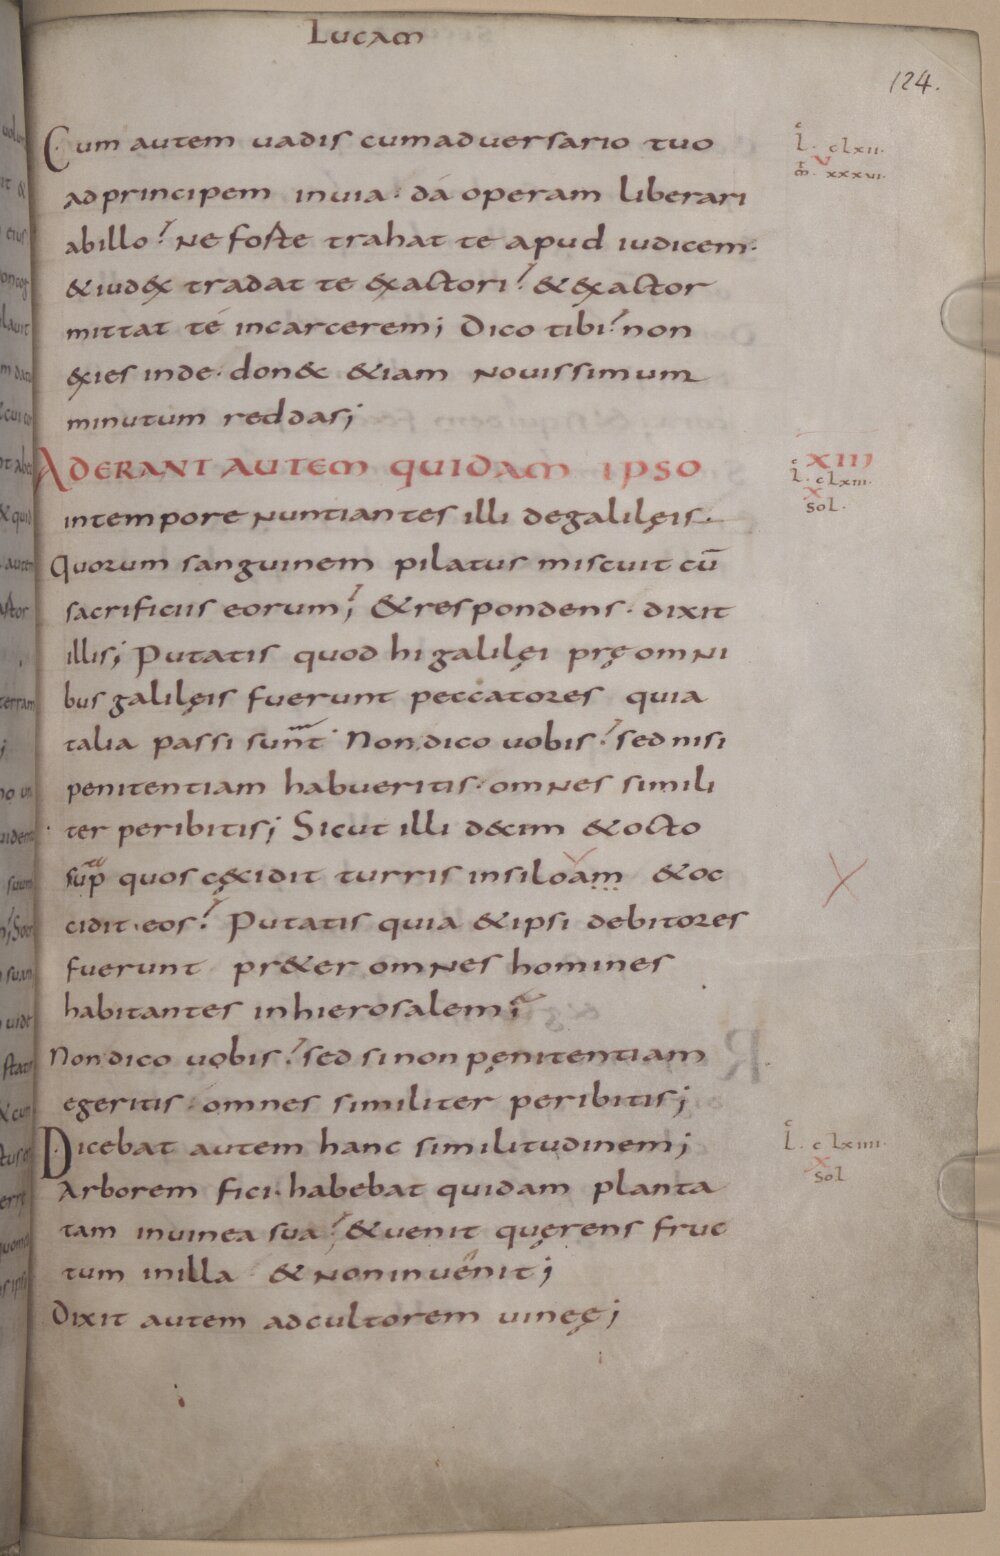 Lucam
124.
Cum autem uadis cumadversario tuo
adprincipem inuia· dá operam liberari
abillo? Ne foste trahat te apud iudicem·
&iud&x tradat te exactori? & exactor
mittat té incarcerem; Dico tibi? non
exies inde· don&c &iam novissimum
minutum reddas;
ADERANT AUTEM QUIDAM IPSO
intempore nuntiantes illi degalilęis·
Quorum sanguinem pilatus miscuit cū
sacrificiis eorum; &respondens· dixit
illis; Putatis quod hi galilęi pręomni
bus galilęis fuerunt peccatores quia
talia passi sunt Non dico uobis? sed nisi
penitentiam habueritis· omnes simili
ter peribitis; Sicut illi decim &octo
sup quos cęcidit turris insiloam &oc
cidit eos? Putatis quia &ipsi debitores
fuerunt pr&er omnes homines
habitantes inhierosalem;
Non dico uobis? sed sinon pęnitentiam
egeritis· omnes similiter peribitis;
Dicebat autem hanc similitudinem;
Arborem fici· habebat quidam planta
tam inuinea sua? &uenit quęrens fruc
tum inilla & noninuenit;
Dixit autem adcultorem uineę;
L· clxii·
v
m· xxxvi·
XIII
L· clxiii·
x
sol·
L· clxiiii·
x
sol